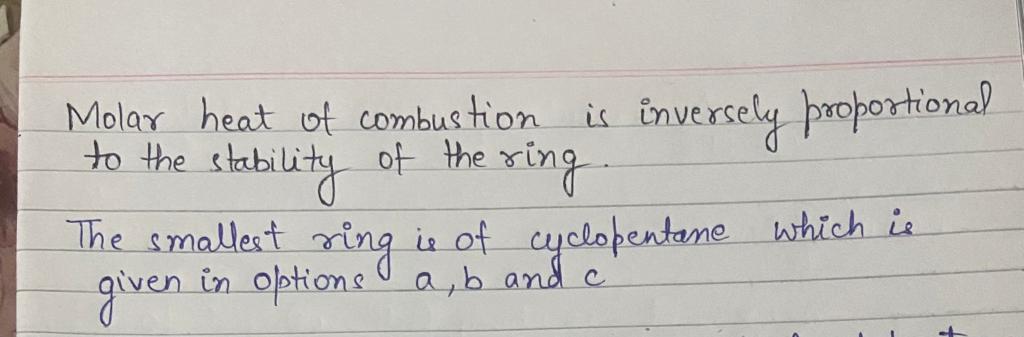 Molar heat of combustion is inversely proportional
to the stability of the ring.
The smallest ring is of cyclopentane which is
given in options a, b and c